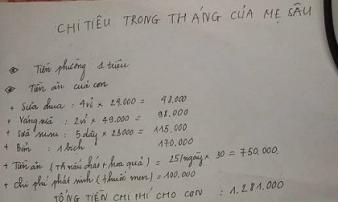 CHI TIÊU TRONG THÁNG CỦA MẸ SÂU
Tiền phường 1 triệu
Tiền ăn của con
+ Sữa chua : 4vỉ × 24.000 = 98.000
+ Váng sữa : 2vỉ × 49.000 = 98.000
+ Sữa num : 5 dây × 23000 = 115.000
+ Bỉm : 1 bịch 170.000
+ Tiền ăn (Th nấu cháo + hoa quả) = 25/ngày × 30 = 750.000
+ Chi phí phát sinh (thuốc men) = 100.000
TỔNG TIỀN CHI PHÍ CHO CON : 1.281.000